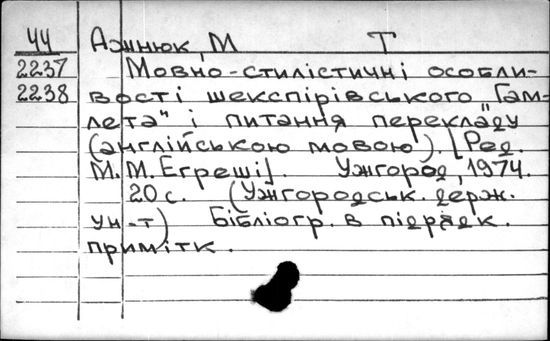 44 Ажнюк, М Т
2237 Мовно-стилістичні особли-
2238 вості шекспірівського "Гам-
лета" і питання перекладу
(англійською мовою). [Ред.
М.М. Егреші]. Ужгород, 1974.
20 с. (Ужгородськ. держ.
ун-т) Бібліогр. в підрядк.
примітк.